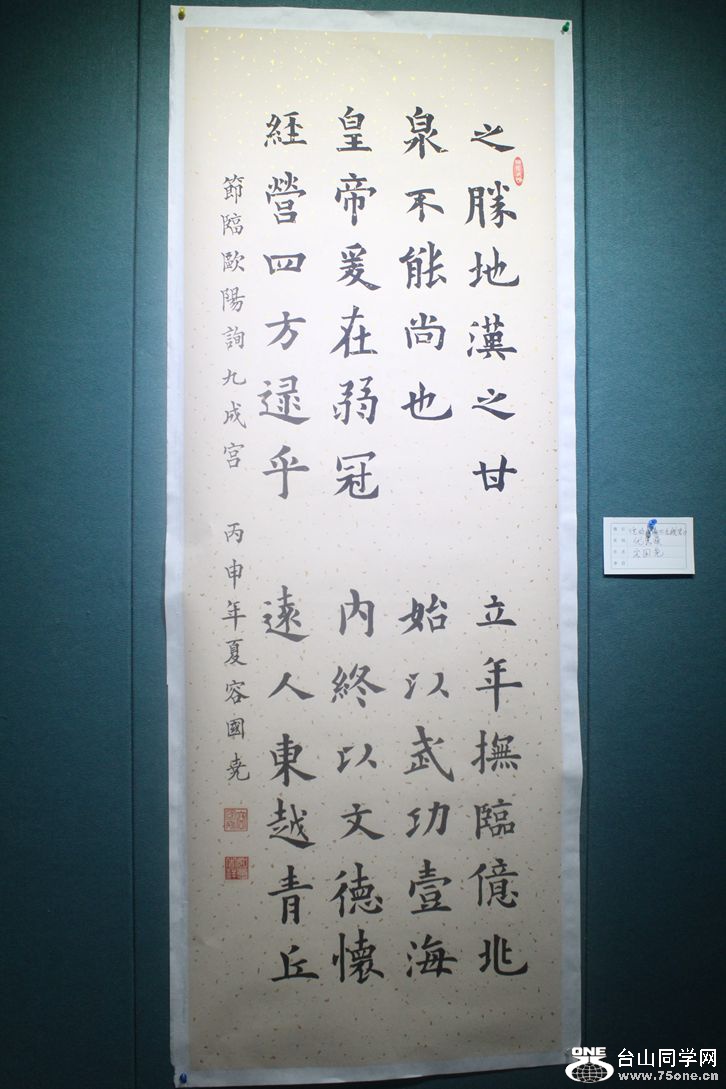 之勝地漢之甘
泉不能尚也
皇帝爰在弱冠
經營四方逮乎
立年撫臨億兆
始以武功壹海
內終以文德懷
遠人東越青丘
節臨歐陽詢九成宮 丙申年夏容國堯
容国尧
ONE
台山同学网
www.75one.cn